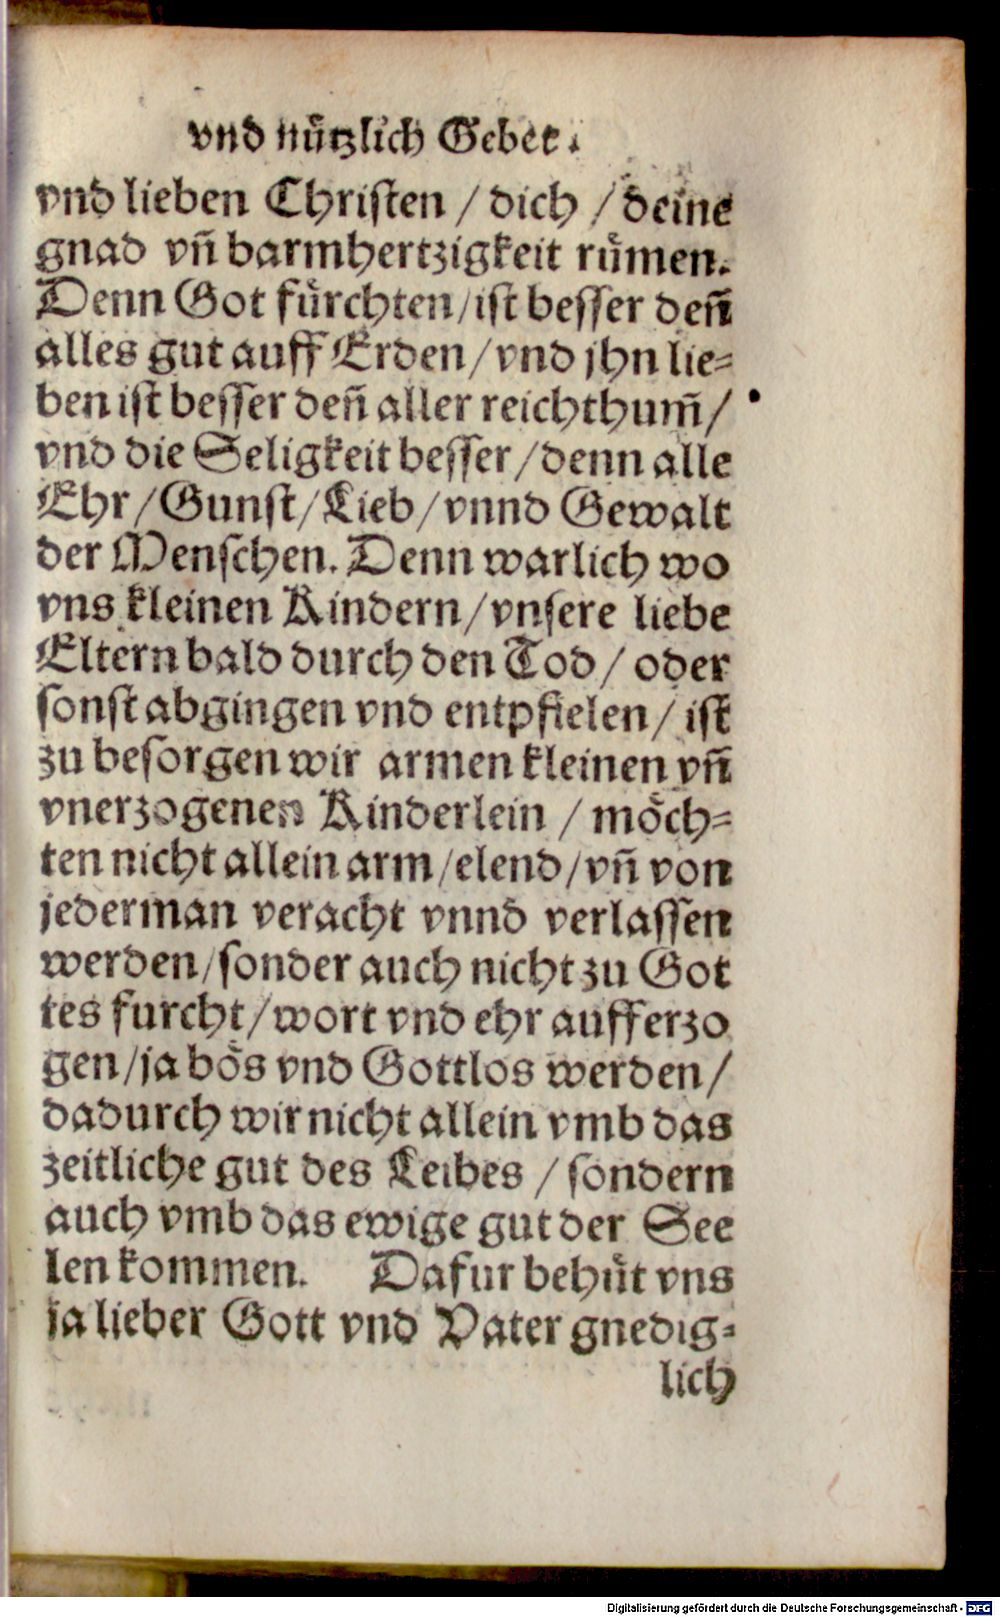 vnd nuͤtzlich Gebet.
vnd lieben Christen / dich / deine
gnad vñ barmhertzigkeit ruͤmen.
Denn Got fuͤrchten/ist besser deñ
alles gut auff Erden/vnd jhn lie⸗
ben ist besser deñ aller reichthum̃/
vnd die Seligkeit besser/denn alle
Ehr/Gunst/Lieb/vnnd Gewalt
der Menschen. Denn warlich wo
vns kleinen Kindern/vnsere liebe
Eltern bald durch den Tod/ oder
sonst abgingen vnd entpfielen/ ist
zu besorgen wir armen kleinen vñ
vnerzogenen Kinderlein / moͤch⸗
ten nicht allein arm/elend/vñ von
jederman veracht vnnd verlassen
werden/sonder auch nicht zu Got
tes furcht/wort vnd ehr aufferzo
gen/ja boͤs vnd Gottlos werden/
dadurch wir nicht allein vmb das
zeitliche gut des Leibes / sondern
auch vmb das ewige gut der See
len kommen. Dafur behuͤt vns
ja lieber Gott vnd Vater gnedig⸗
lich
Digitalisierung gefördert durch die Deutsche Forschungsgemeinschaft - DFG